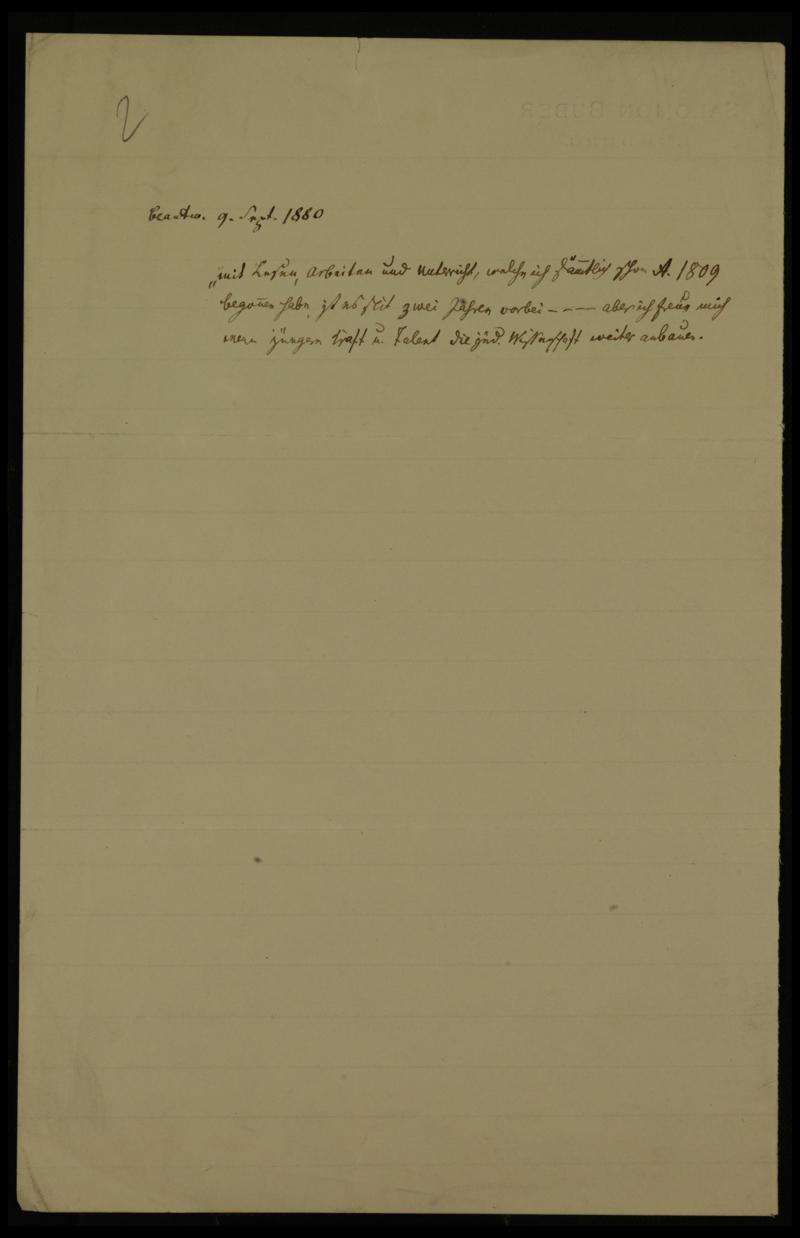 2
SALOMON BUBER
LEMBERG.
beantw. 9. Sept. 1880
„mit Lesen, Arbeiten und Unterricht, welche ich sämtlich schon A. 1809
begonnen habe, ist es seit zwei Jahren vorbei – – — aber ich freue mich
wenn jüngere Kraft u. Talent die jüd. Wissenschaft weiter anbauen.